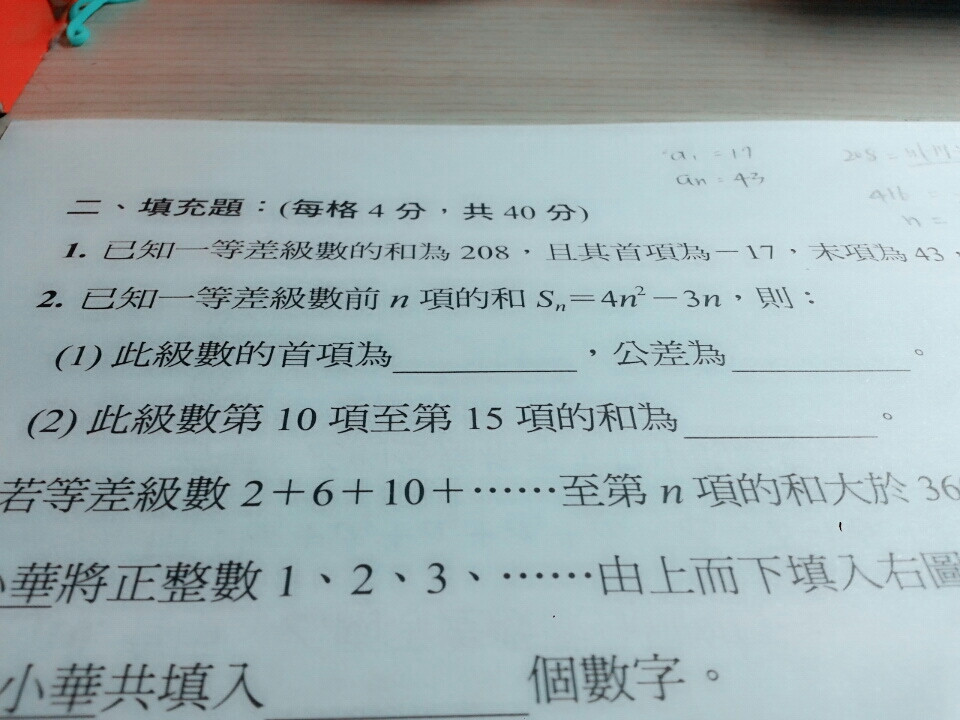 a₁ = 17
an = 43
208 =
416 =
n =
二、填充題：(每格 4 分，共 40 分)
1. 已知一等差級數的和為 208，且其首項為－17，末項為 43，
2. 已知一等差級數前 n 項的和 Sₙ＝4n²－3n，則：
(1) 此級數的首項為＿＿＿＿＿＿，公差為＿＿＿＿＿＿。
(2) 此級數第 10 項至第 15 項的和為＿＿＿＿＿＿。
若等差級數 2＋6＋10＋……至第 n 項的和大於 36
華將正整數 1、2、3、……由上而下填入右圖
小華共填入＿＿＿＿＿＿個數字。